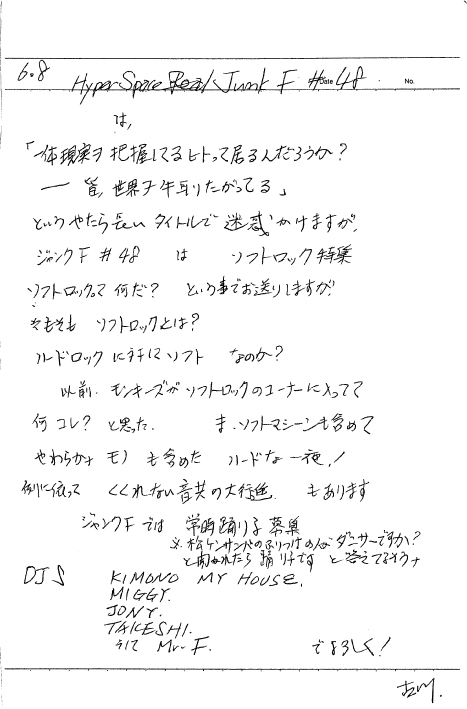 6.8 Hyper Space Real Junk F #48
Date No.
は,
「一体現実ヲ 把握してるヒトって居るんだろうか?
― 皆, 世界ヲ牛耳りたがってる」
というやたら長い タイトルで 迷惑 かけますが,
ジャンクF #48 は ソフトロック特集
ソフトロックって 何だ? という事でお送りしますが
そもそも ソフトロックとは?
ハードロック に対し ソフト なのか?
以前. モンキーズがソフトロックのコーナーに入ってて
何コレ? と思った. ま.ソフトマシーンも含めて
やわらかナ モノ も含めた ハードな一夜!
例に依って くくれない音共の大行進. もあります
ジャンクFでは 常時踊り子募集
※. 松ケンサンバのふりつけの人が ダンサーですか?
と聞かれたら 踊り子です と答えてるそうナ
DJS KIMONO MY HOUSE.
MIGGY.
JONY.
TAKESHI.
そして Mr. F. でよろしく!
古川.